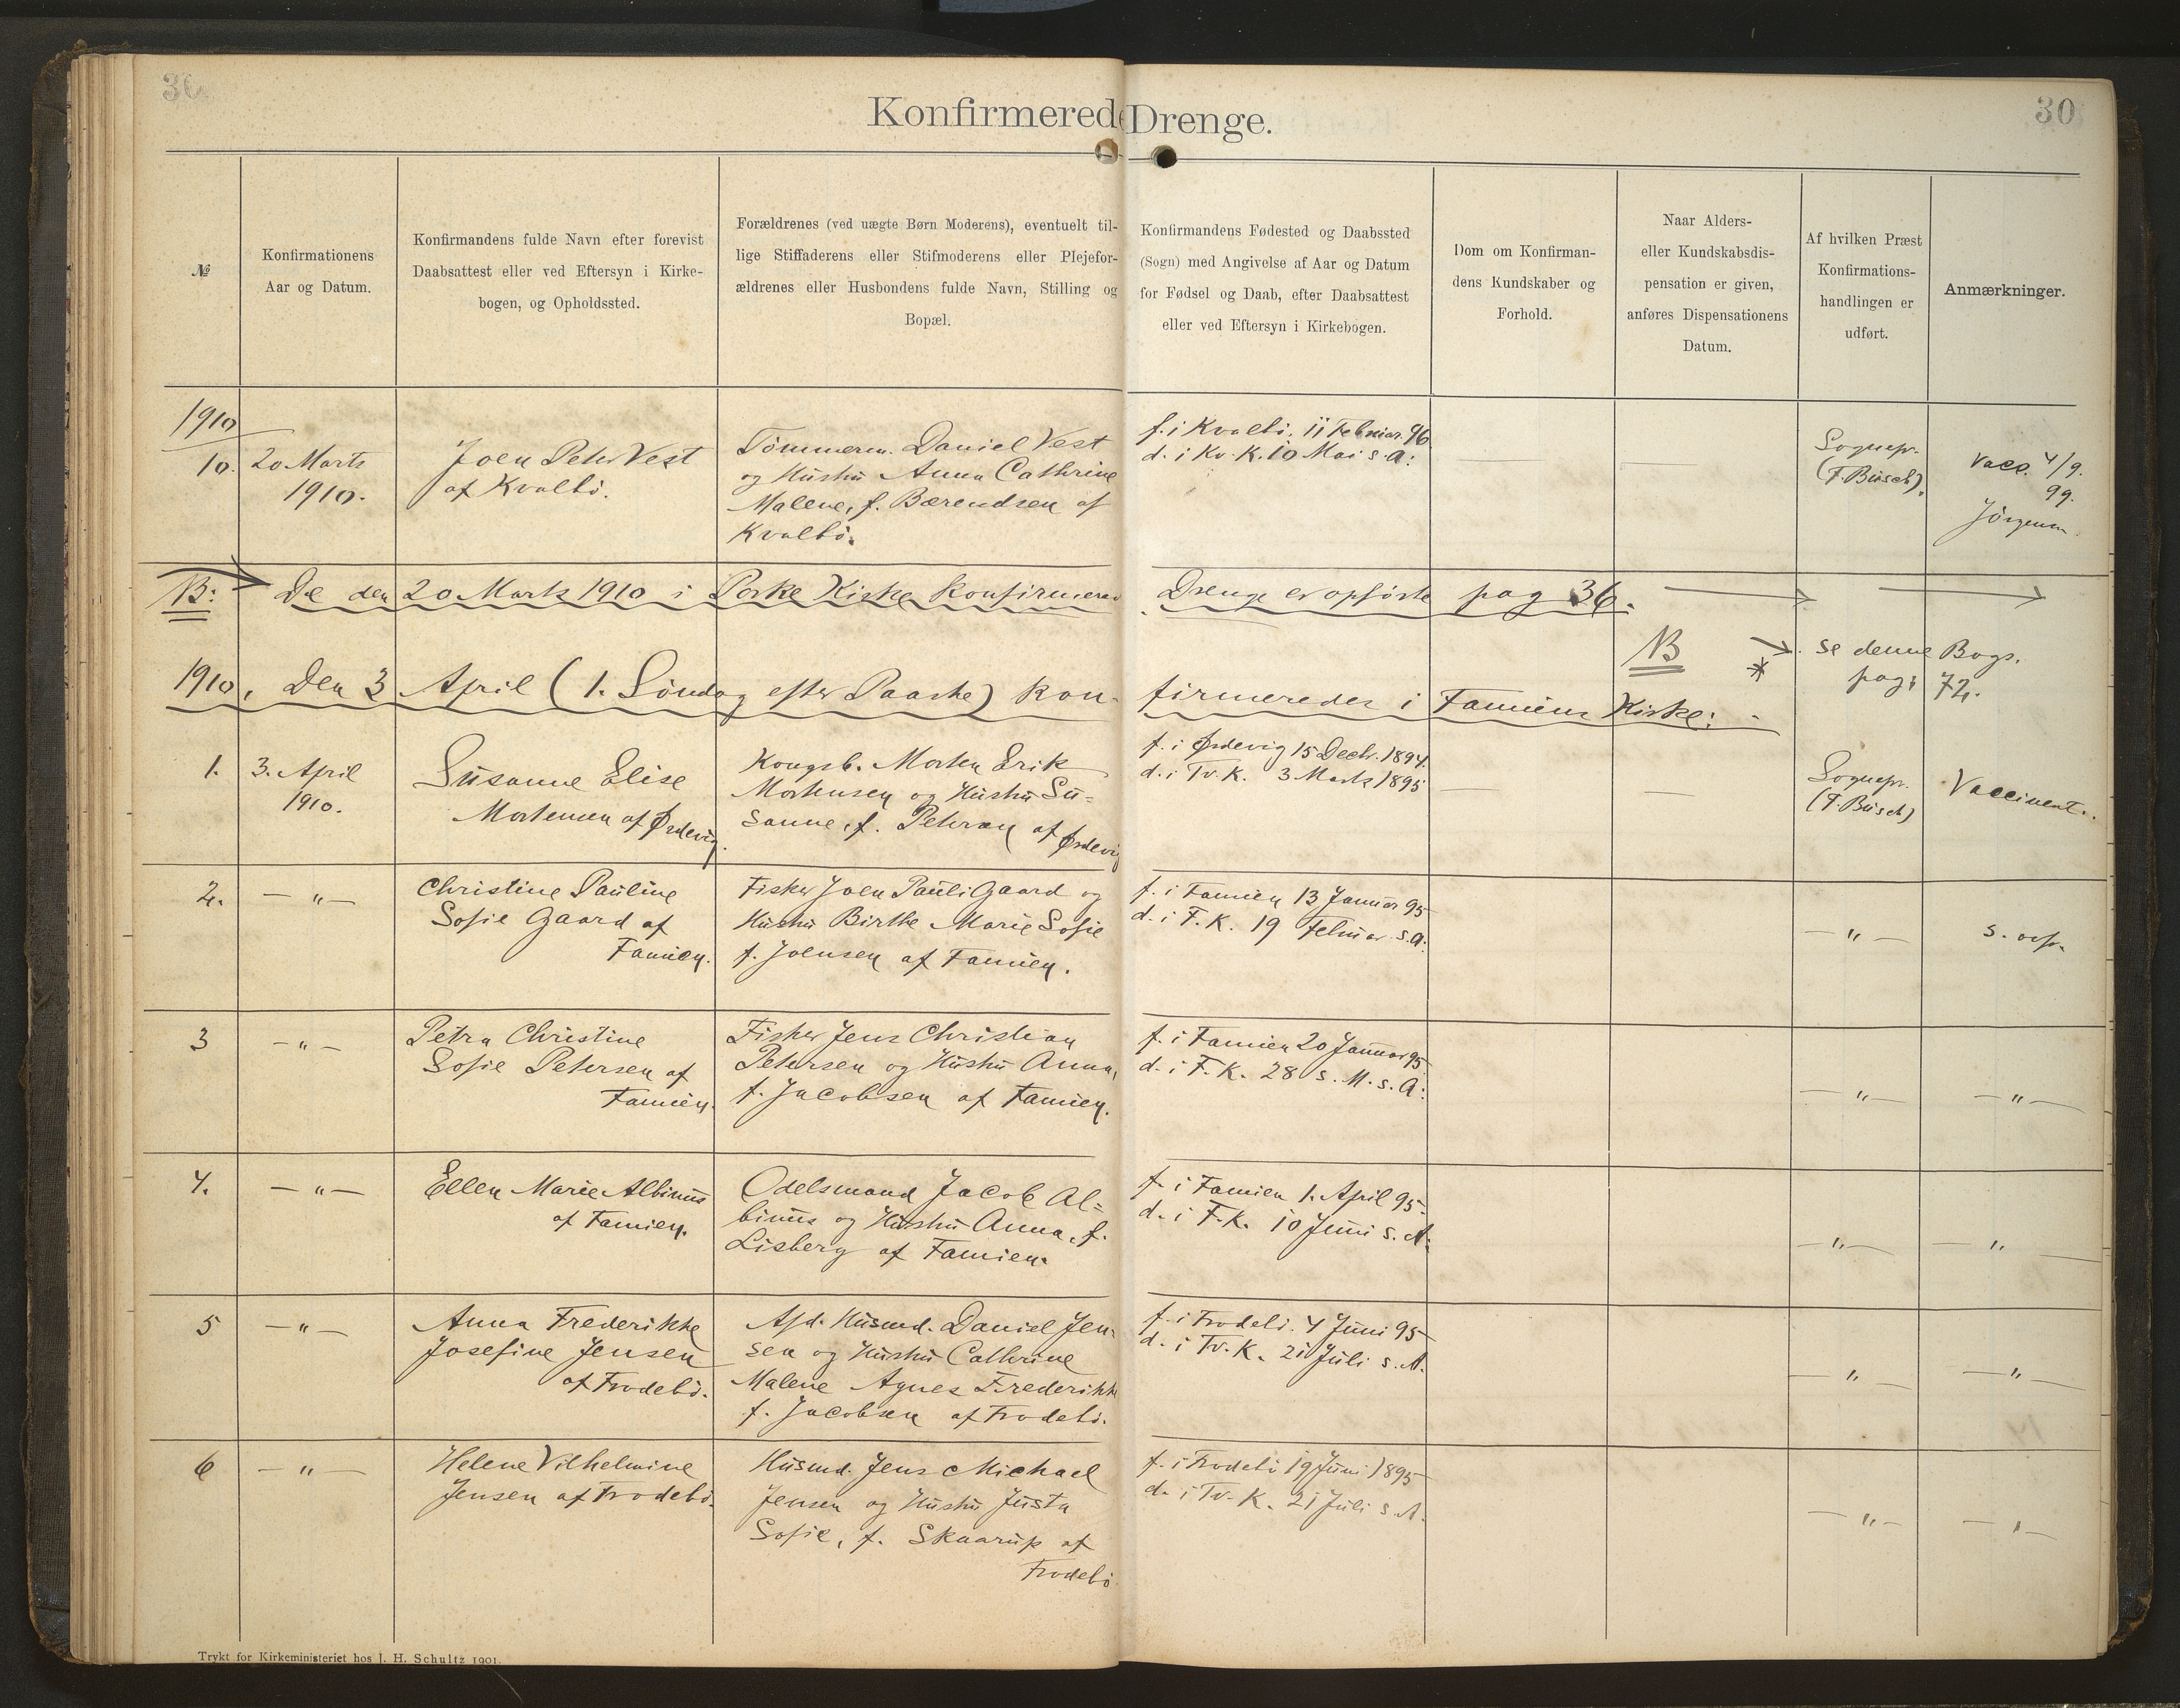 30
Konfirmerede Drenge.
30
№
Konfirmationens
Aar og Datum.
Konfirmandens fulde Navn efter forevist
Daabsattest eller ved Eftersyn i Kirke-
bogen, og Opholdssted.
Forældrenes (ved uægte Børn Moderens), eventuelt til-
lige Stiffaderens eller Stifmoderens eller Plejefor-
ældrenes eller Husbondens fulde Navn, Stilling og
Bopæl.
Konfirmandens Fødested og Daabssted
(Sogn) med Angivelse af Aar og Datum
for Fødsel og Daab, efter Daabsattest
eller ved Eftersyn i Kirkebogen.
Dom om Konfirman-
dens Kundskaber og
Forhold.
Naar Alders-
eller Kundskabsdis-
pensation er given,
anføres Dispensationens
Datum.
Af hvilken Præst
Konfirmations-
handlingen er
udført.
Anmærkninger.
1910
10.
20 Marts
1910.
Joen Peter Vest
af Kvalbö.
Tömmerm. Daniel Vest
og Hustru Anna Cathrine
Malene, f. Bærendsen af
Kvalbö.
f. i Kvalbö. 11 Februar. 96
d. i Kv. K. 10 Mai s. A:
Sognepr.
(F. Büsch).
Vacc. 4/9.
99.
Jörgensen
NB: De den 20 Marts 1910 i Porke Kirke Konfirmered Drenge er opförte pag 36.
NB * se denne Bogs.
pag; 72.
1910, Den 3 April (1. Söndag efter Paaske) kon- firmeredes i Famiens Kirke:
1.
3. April
1910.
Susanne Elise
Mortensen af Ørdevig.
Kongsb. Morten Erik
Mortensen og Hustru Su=
sanne, f. Petersen af Ørdevig
f. i Ørdevig 15 Decbr. 1894.
d. i Tv. K. 3 Marts 1895
Sognepr.
(F. Büsch)
Vaccineret.
2. — " —
Christine Pauline
Sofie Gaard af
Famien.
Fisker Joen Pauli Gaard og
Hustru Birthe Marie Sofie
f. Joensen af Famien.
f. i Famien 13 Januar 95
d. i F. K. 19 Februar s. A:
— " —
s. ovf.
3 — " —
Petra Christine
Sofie Petersen af
Famien.
Fisker Jens Christian
Petersen og Hustru Anna,
f. Jacobsen af Famien.
f. i Famien 20 Januar 95
d. i F. K. 28 s. M. s. A:
— " —
— " —
4. — " —
Ellen Marie Albinus
af Famien.
Odelsmand Jacob Al=
binus og Hustru Anna, f.
Lisberg af Famien.
f. i Famien 1. April 95
d. i F. K. 10 Juni s. A:
— " —
— " —
5 — " —
Anna Frederikke
Josefine Jensen
af Frodebö.
Afd. Husmd. Daniel Jen-
sen og Hustru Cathrine
Malene Agnes Frederikke
f. Jacobsen af Frodebö.
f. i Frodebö. 4 Juni 95
d. i Tv. K. 21 Juli s. A.
— " —
— " —
6 — " —
Helene Vilhelmine
Jensen af Frodebö.
Husmd. Jens Michael
Jensen og Hustru Justa
Sofie, f. Skaarup af
Frodebö
f. i Frodebö 19 Juni 1895
d. i Tv. K. 21 Juli s. A.
— " —
— " —
Trykt for Kirkeministeriet hos J. H. Schultz 1901.